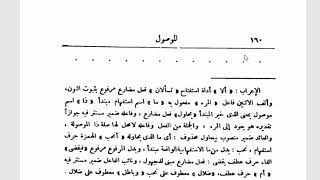 ١٦٠ الموصول
الإعراب : « ألا » أداة استفتاح « تسألان » فعل مضارع مرفوع بثبوت النون،
وألف الاثنين فاعل « المرء » مفعول به « ما » اسم استفهام مبتدأ « ذا » اسم
موصول بمعنى الذى خبر المبتدأ « يحاول » فعل مضارع ، وفاعله ضمير مستتر فيه جوازاً
تقديره هو يعود إلى المرء ، والجملة من الفعل وفاعله لامحل لها صلة ذا الموصولة ،
والعائد ضمير منصوب بيحاول محذوف : أى ما الذى يحاوله « أنحب » الهمزة حرف
استفهام ، نحب : بدل من ما الاستفهامية الواقعة مبتدأ ، وبدل المرفوع مرفوع « فيقضى »
الفاء حرف عطف يقضى : فعل مضارع مبنى للمجهول ، ونائب الفاعل ضمير مستتر فيه
« أم » حرف عطف، « ضلال » معطوف على نحب « وباطل » معطوف على ضلال